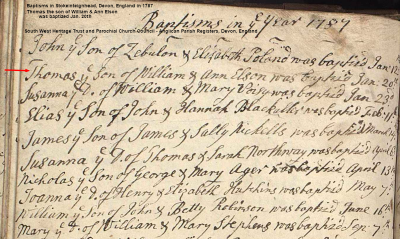 Baptisms in Stokeinteignhead, Devon, England in 1787
Thomas the son of William & Ann Elson
was baptized Jan. 20th
South West Heritage Trust and Parochial Church Council - Anglican Parish Registers, Devon, England
Baptisms in ye Year 1787
John ye Son of Zebulon & Elizabeth Poland was baptied Jan
Thomas ye Son of William & Ann Elson was baptied Jan 20th
Susanna ye D. of William & Mary was baptied Jan 23d
Elias ye Son of John & Hannah Blackaller was baptied Feb
James ye Son of James & Sally Rickells was baptied March
Susanna ye D. of Thomas & Sarah Northway was baptied April
Nicholas ye Son of George & Mary Ager was baptied April 13th
Joanna ye D. of Henry & Elizabeth Hutchins was baptied May 7th
William ye Son of John & Betty Robinson was baptied June 16th
Mary ye D. of William & Mary Stephens was baptied Sep 7th